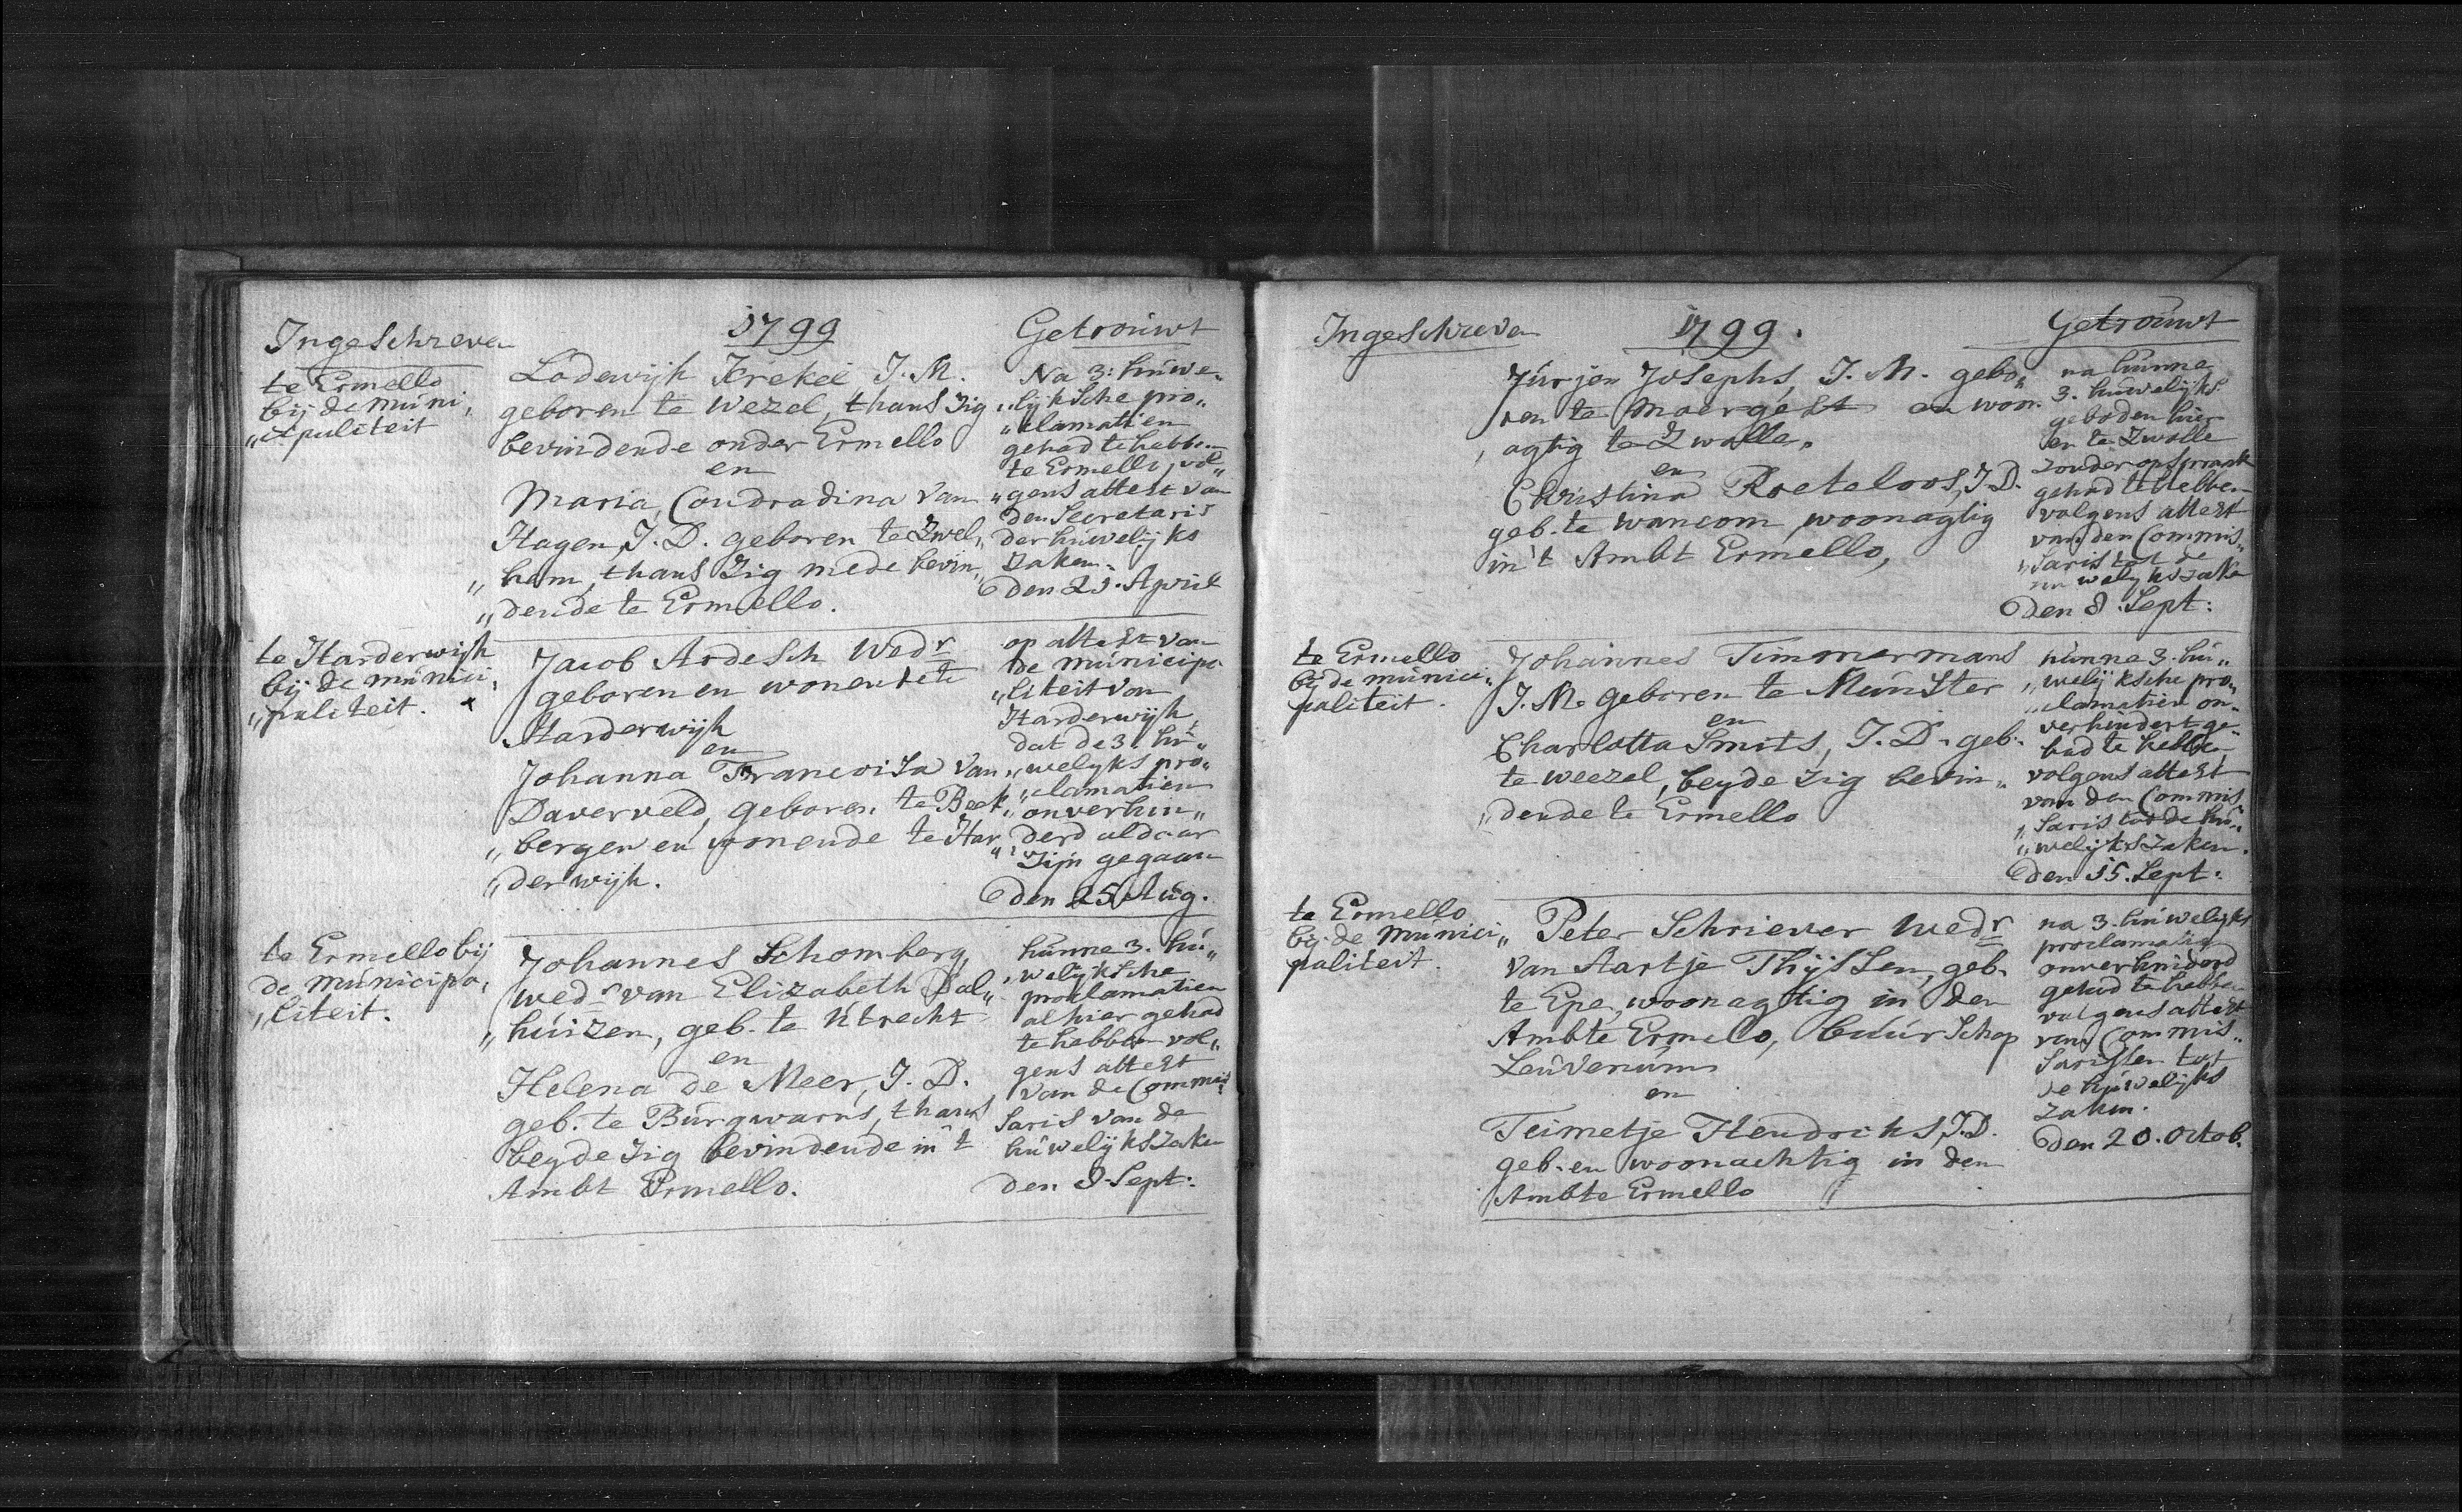 Ingeschreven
1799
Getrouwt
te Ermello
bij de muni,
„cipaliteit
Lodewijk Krekel, J. M.
geboren te Wezel, thans zig
bevindende onder Ermello
en
Maria, Condradina van
Hagen, J. D. geboren te Zwel,,
„ham, thans zig mede bevin,,
„dende te Ermello.
Na 3: huwe„
„lijksche pro„
„clamatien
gehad te hebben
te Ermello, vol„
„gens attest van
den Secretaris
der huwelijks
zaken.
den 21. April
te Harderwijk
bij de munici,
„paliteit.
Jacob Ardesch Wedr
geboren en wonende te
Harderwijk
en
Johanna Francoisa van
Daverveld, geboren te Beek,,
„bergen en wonende te Har„
„derwijk.
op attest van
de municipa
„liteit van
Harderwijk,
dat de 3. hu„
„welyks pro„
„clamatien
onverhin„
„derd aldaar
Zijn gegaan
den 25 Aug.
te Ermello bij
de municipa,
„liteit.
Johannes Schomberg,
wedr van Elizabeth Dal„
„huizen, geb. te Utrecht
en
Helena de Meer, J. D.
geb. te Burgwarns, thans
beyde zig bevindende in't
Ambt Ermello.
hunne 3. hu„
„welyksche
proclamatien
alhier gehad
te hebben vol„
gens attest
van de Commis
saris van de
huwelijkszaken
den 8 Sept:
Ingeschreven
1799.
Getrouwt
Jurjen Josephs, J. M. gebo„
ren te Moergest en woon.
„agtig te Zwolle,
en
Christina Roeteloos, J. D.
geb. te wancom, woonagtig
in't Ambt Ermello,
na hunne
3. huwelijks
geboden hier
en te Zwolle
zonder opspraak
gehad te hebben
volgens attest
van den Commis„
„saris tot de
huwelykszaken
den 8. Sept:
te Ermello
bij de munici„
paliteit.
Johannes Timmermans
J. M. geboren te Munster
en
Charlotta Smits, J. D. geb.
te weezel, beyde zig bevin„
„dende te Ermello
hunne 3. hu„
„welijksche pro„
„clamatien on„
verhindert ge„
had te hebben
volgens attest
van den Commis
„saris tot de hu„
„welijkszaken.
den 15. Sept:
te Ermello
bij de Munici„
paliteit.
Peter Schriever wedr
van Aartje Thijssen, geb.
te Epe, woonagtig in den
Ambte Ermelo, buurschap
Leuvenum
en
Teimetje Hendriks, J. D.
geb. en woonachtig in den
Ambte Ermello
na 3. huwelijks
proclamatien
onverhinderd
gehad te hebben
volgens attest
van Commis„
sarissen tot
de huwelijks
zaken.
den 20. Octob.